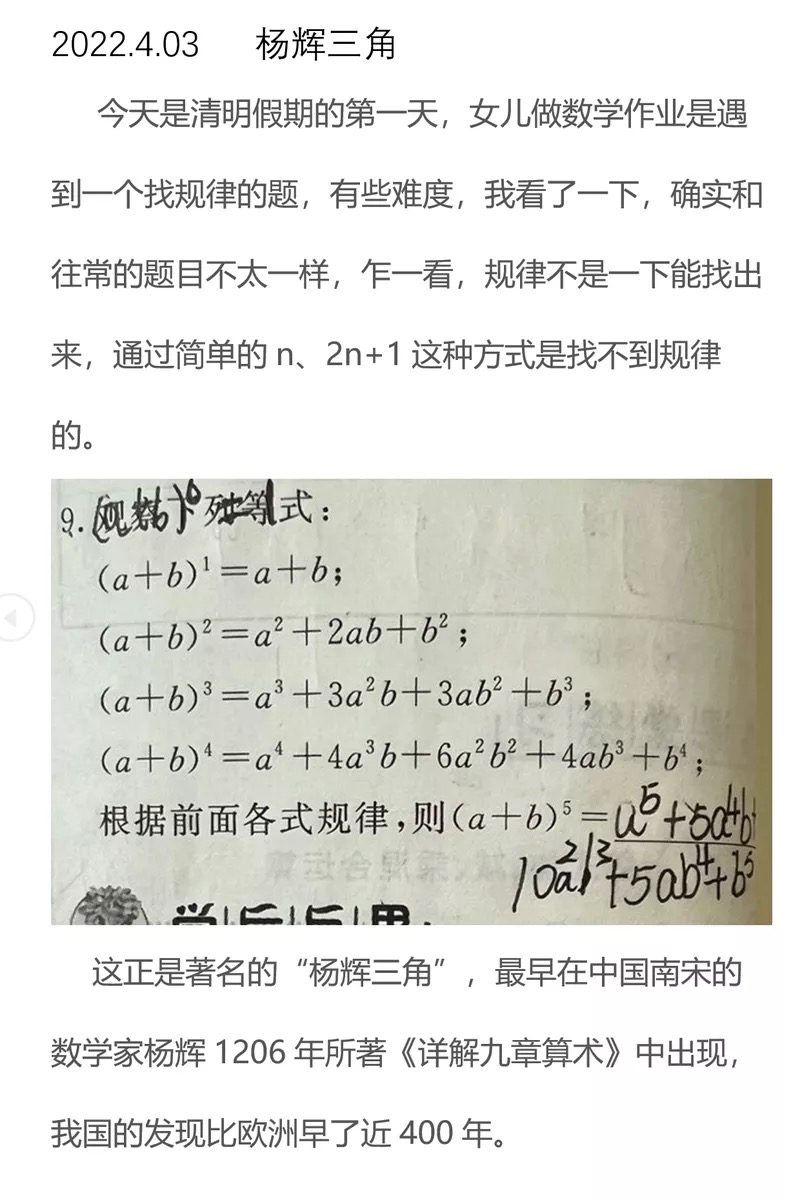 2022.4.03 杨辉三角
今天是清明假期的第一天，女儿做数学作业是遇
到一个找规律的题，有些难度，我看了一下，确实和
往常的题目不太一样，乍一看，规律不是一下能找出
来，通过简单的 n、2n+1 这种方式是找不到规律
的。
9. 观察下列等式：
(a+b)¹=a+b；
(a+b)²=a²+2ab+b²；
(a+b)³=a³+3a²b+3ab²+b³；
(a+b)⁴=a⁴+4a³b+6a²b²+4ab³+b⁴；
根据前面各式规律，则(a+b)⁵=a⁵+5a⁴b+
10a²b³+5ab⁴+b⁵
这正是著名的“杨辉三角”，最早在中国南宋的
数学家杨辉 1206 年所著《详解九章算术》中出现，
我国的发现比欧洲早了近 400 年。